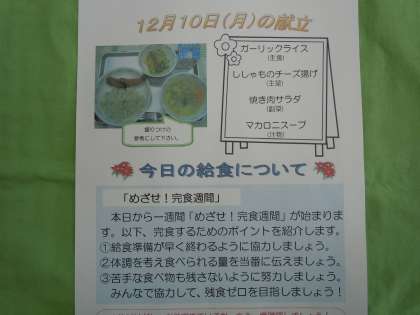 12月10日(月)の献立
ガーリックライス
(主食)
ししゃものチーズ揚げ
(主菜)
焼き肉サラダ
(副菜)
マカロニスープ
(汁物)
盛りつけの
参考にして下さい。
今日の給食について
「めざせ!完食週間」
本日から一週間「めざせ!完食週間」が始まりま
す。以下、完食するためのポイントを紹介します。
①給食準備が早く終わるように協力しましょう。
②体調を考え食べられる量を当番に伝えましょう。
③苦手な食べ物も残さないように努力しましょう。
みんなで協力して、残食ゼロを目指しましょう!